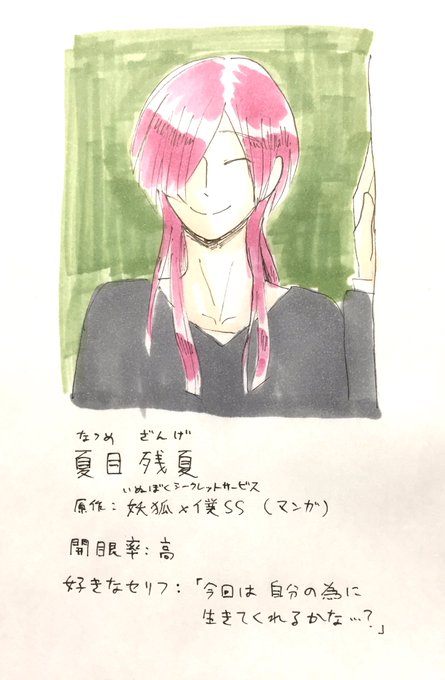 なつめ ざんげ
夏目 残夏
いぬぼくシークレットサービス
原作：妖狐×僕SS（マンガ）
開眼率：高
好きなセリフ：「今回は自分の為に
生きてくれるかな…？」